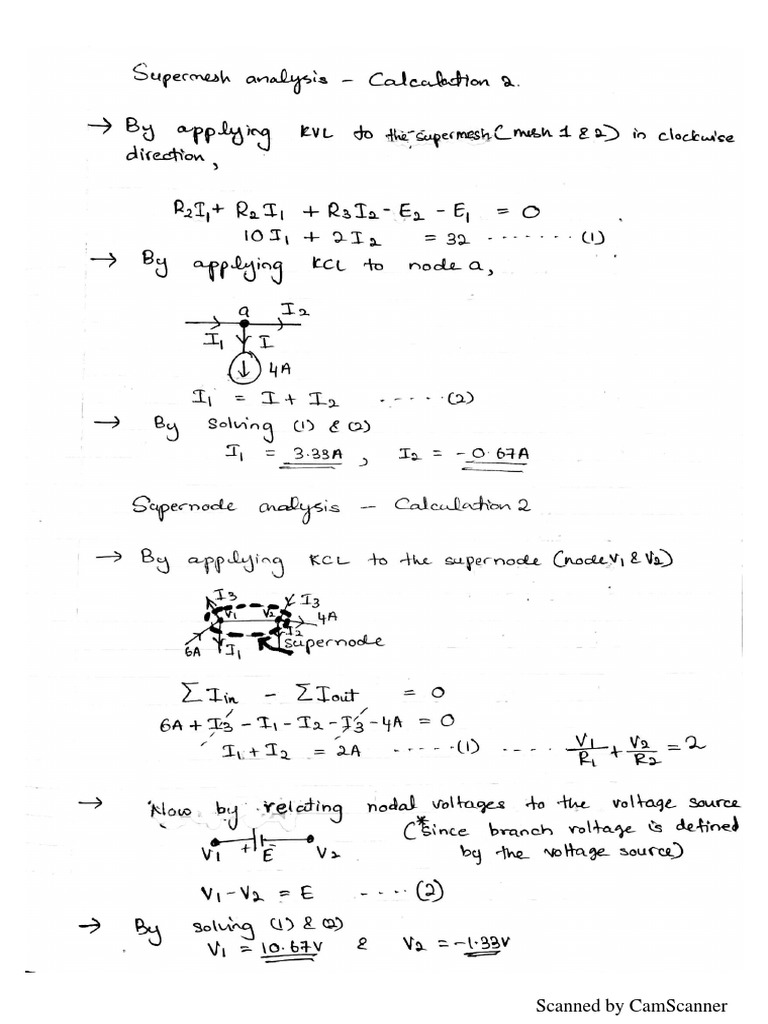 Supermesh analysis - Calculation 2.
→ By applying KVL to the supermesh (mesh 1 & 2) in clockwise
direction,
R2I1 + R2I1 + R3I2 - E2 - E1 = 0
10I1 + 2I2 = 32 ....... (1)
→ By applying KCL to node a,
a I2
I1 I
4A
I1 = I + I2 ..... (2)
→ By solving (1) & (2)
I1 = 3.33A , I2 = -0.67A
Supernode analysis - Calculation 2
→ By applying KCL to the supernode (node V1 & V2)
I3 I3
V1 V2 4A
6A I1 I2 supernode
ΣIin - ΣIout = 0
6A + I3 - I1 - I2 - I3 - 4A = 0
I1 + I2 = 2A ..... (1) .... V1/R1 + V2/R2 = 2
→ Now by relating nodal voltages to the voltage source
(*since branch voltage is defined
by the voltage source)
V1 + E - V2
V1 - V2 = E .... (2)
→ By solving (1) & (2)
V1 = 10.67V & V2 = -1.33V
Scanned by CamScanner